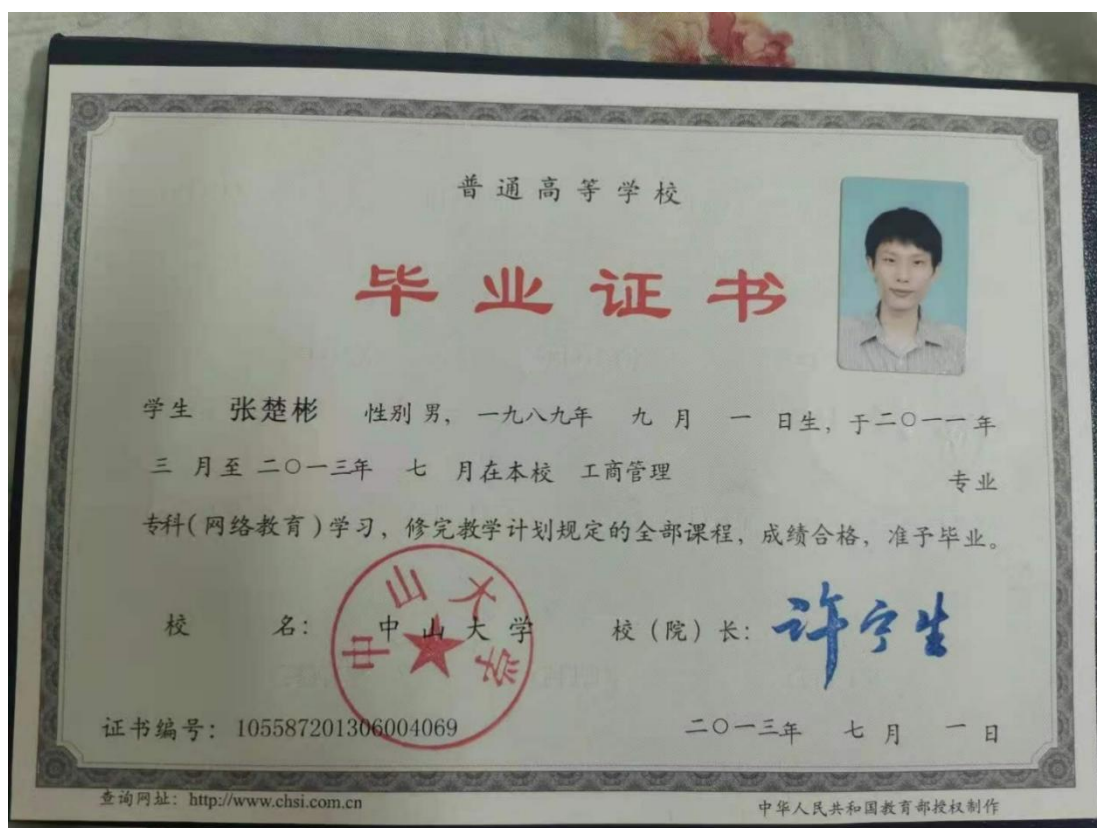 普通高等学校
毕业证书
学生 张楚彬 性别 男， 一九八九年 九 月 一 日生，于二〇一一年
三 月至 二〇一三年 七 月在本校 工商管理 专业
专科（网络教育）学习，修完教学计划规定的全部课程，成绩合格，准予毕业。
校 名： 中山大学 校（院）长： 许宁生
中山大学
证书编号： 105587201306004069 二〇一三年 七 月 一 日
查询网址：http://www.chsi.com.cn 中华人民共和国教育部授权制作